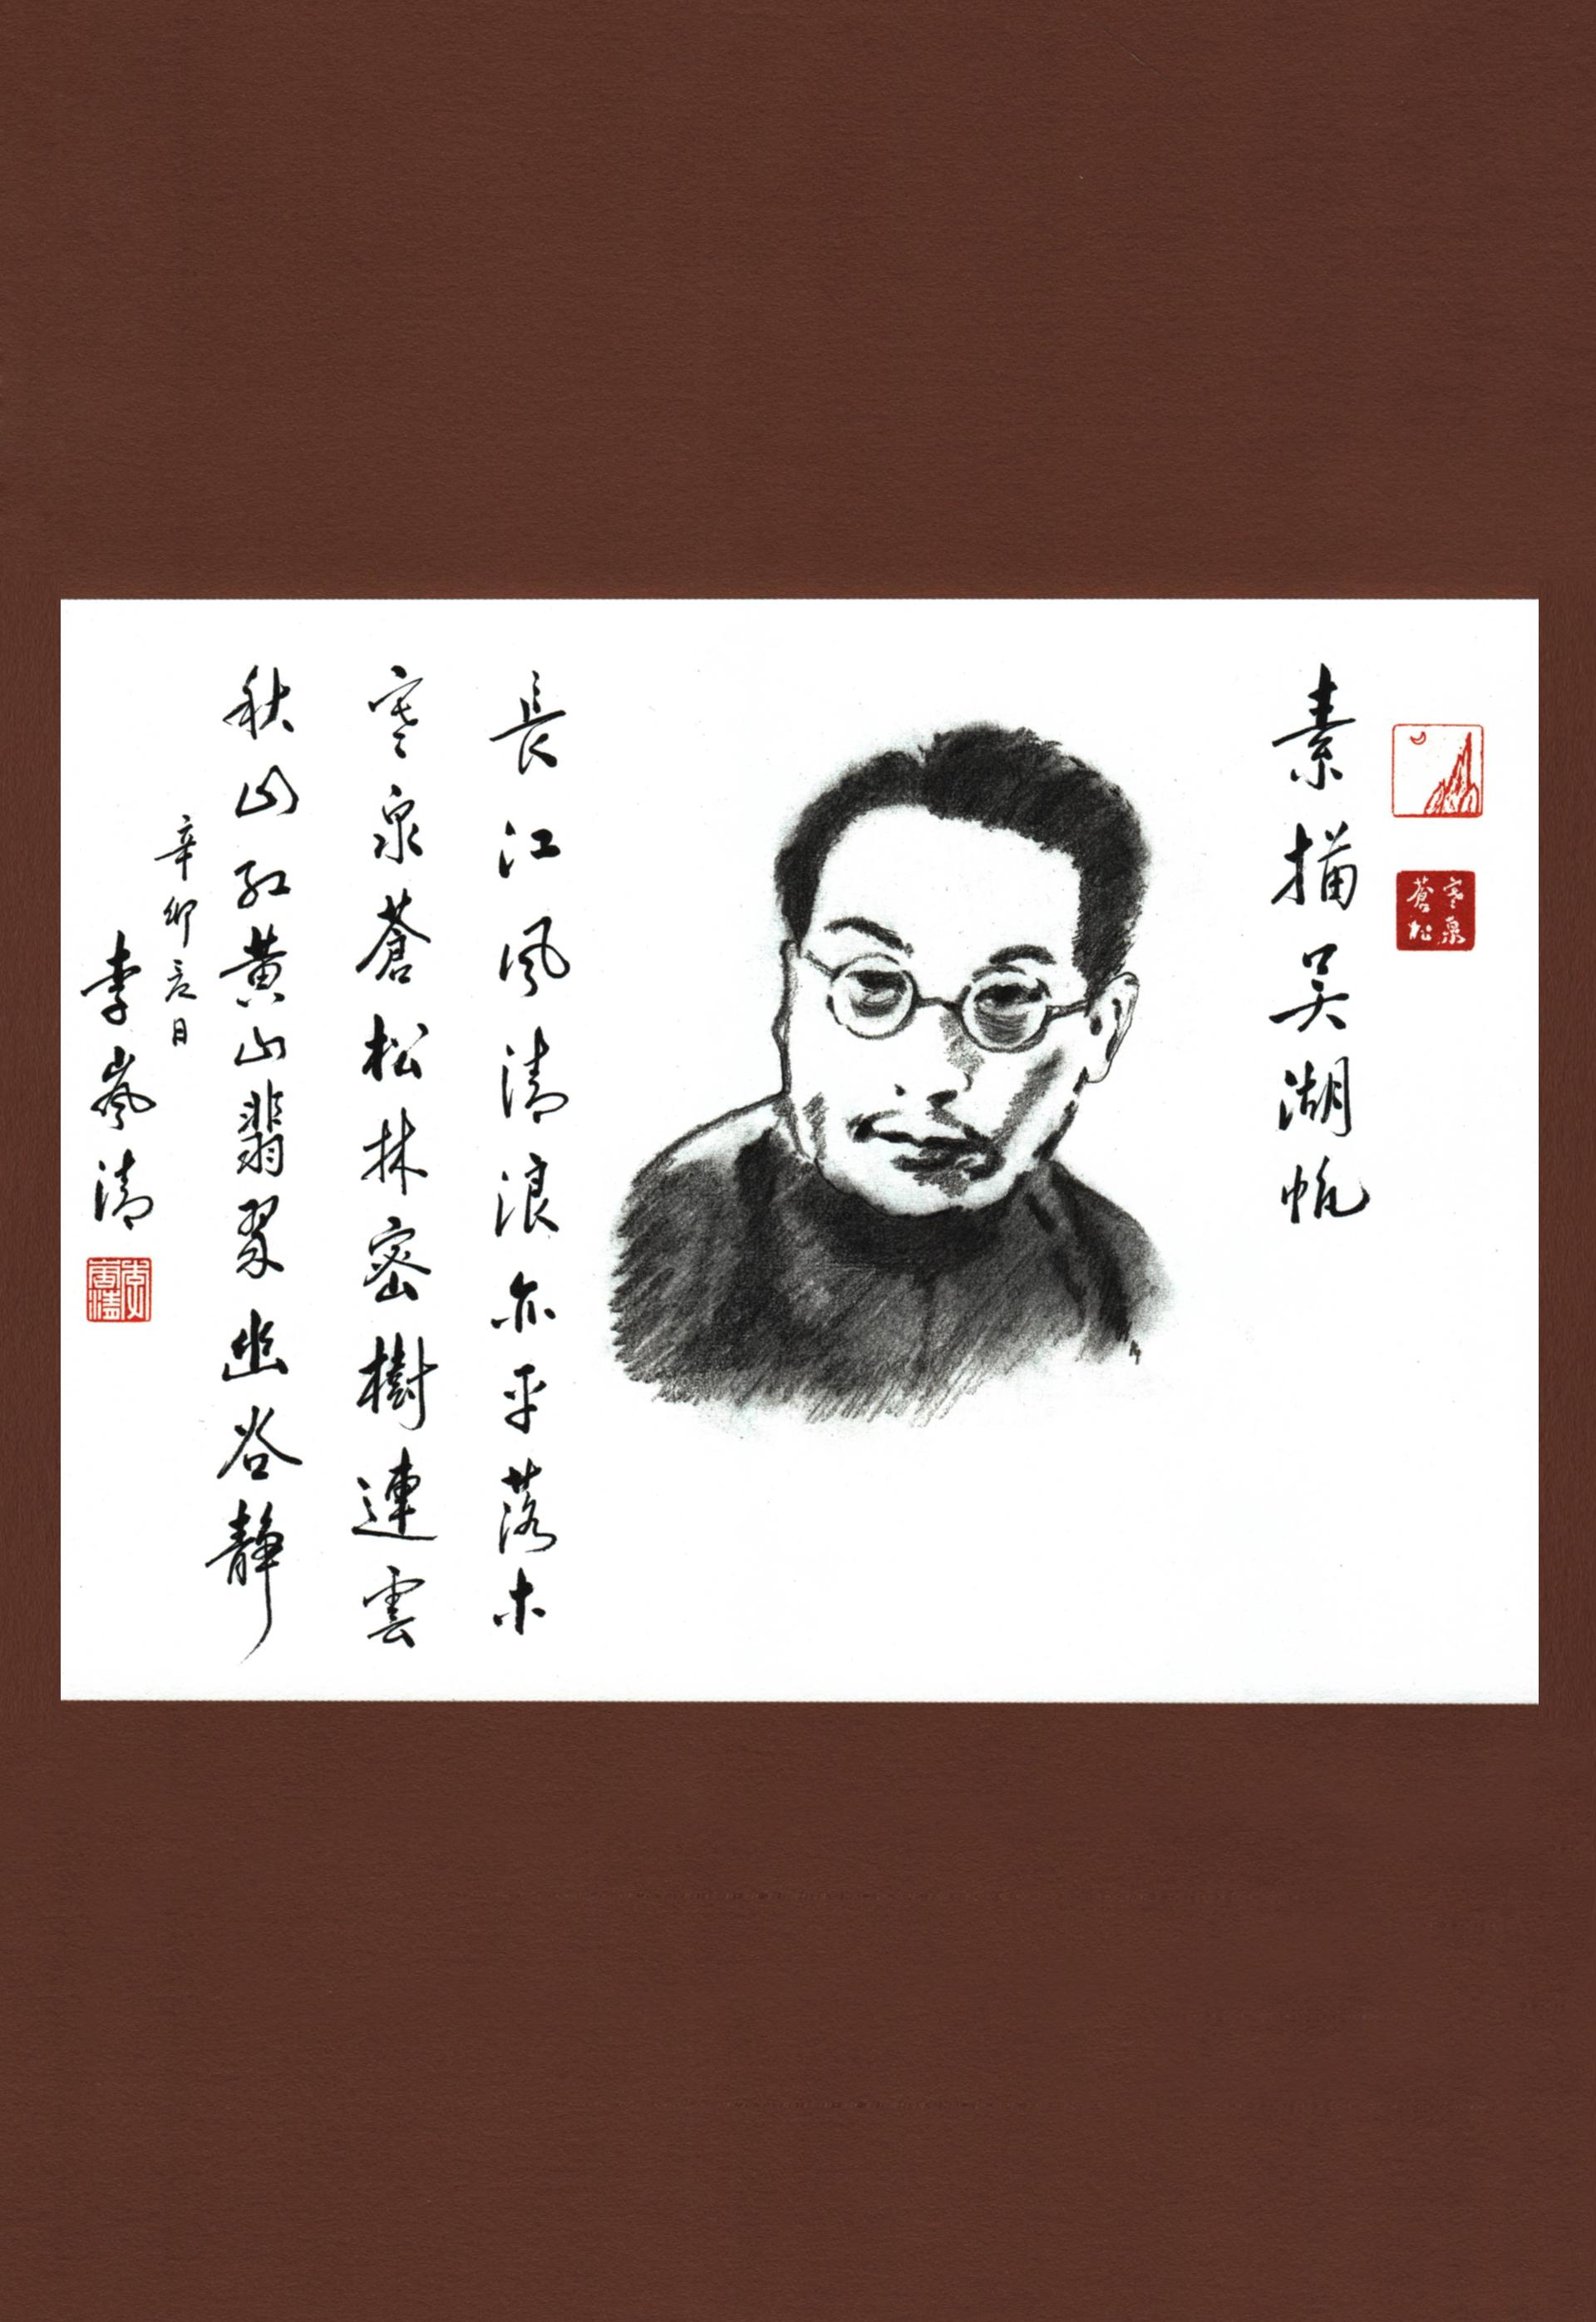 素描吴湖帆
寒泉
蒼松
長江風清浪亦平落木
寒泉蒼松林密樹連雲
秋山紅黄山翡翠幽谷静
辛卯亥月
李嵐清
李嵐清